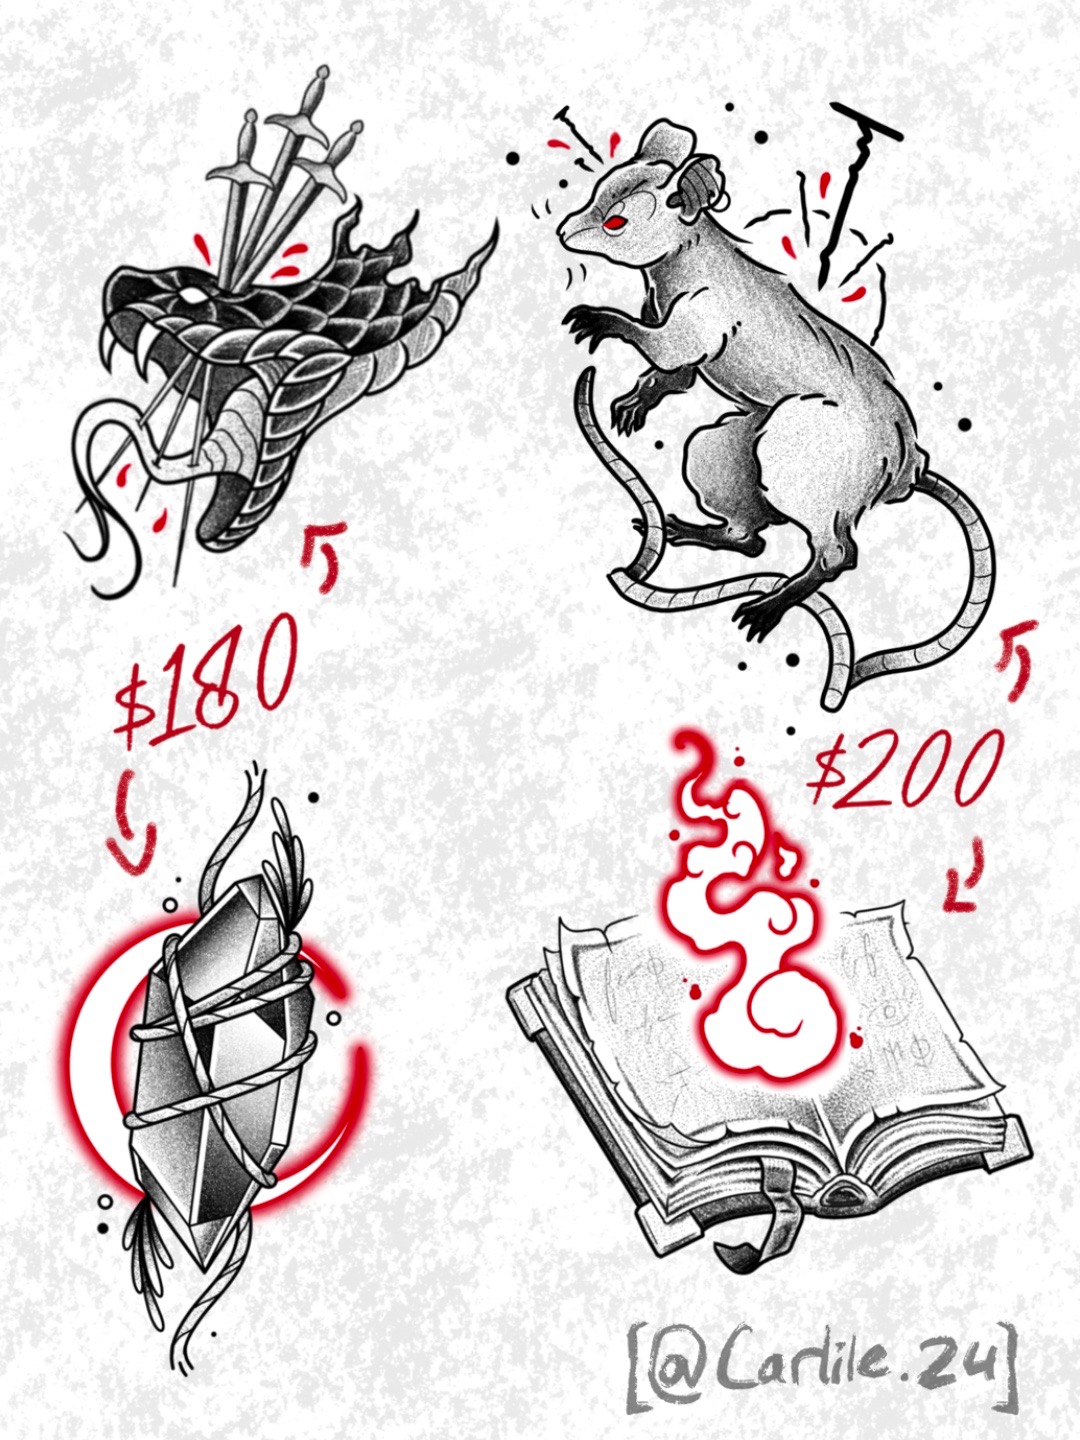 $180
$200
[@Carlile.24]